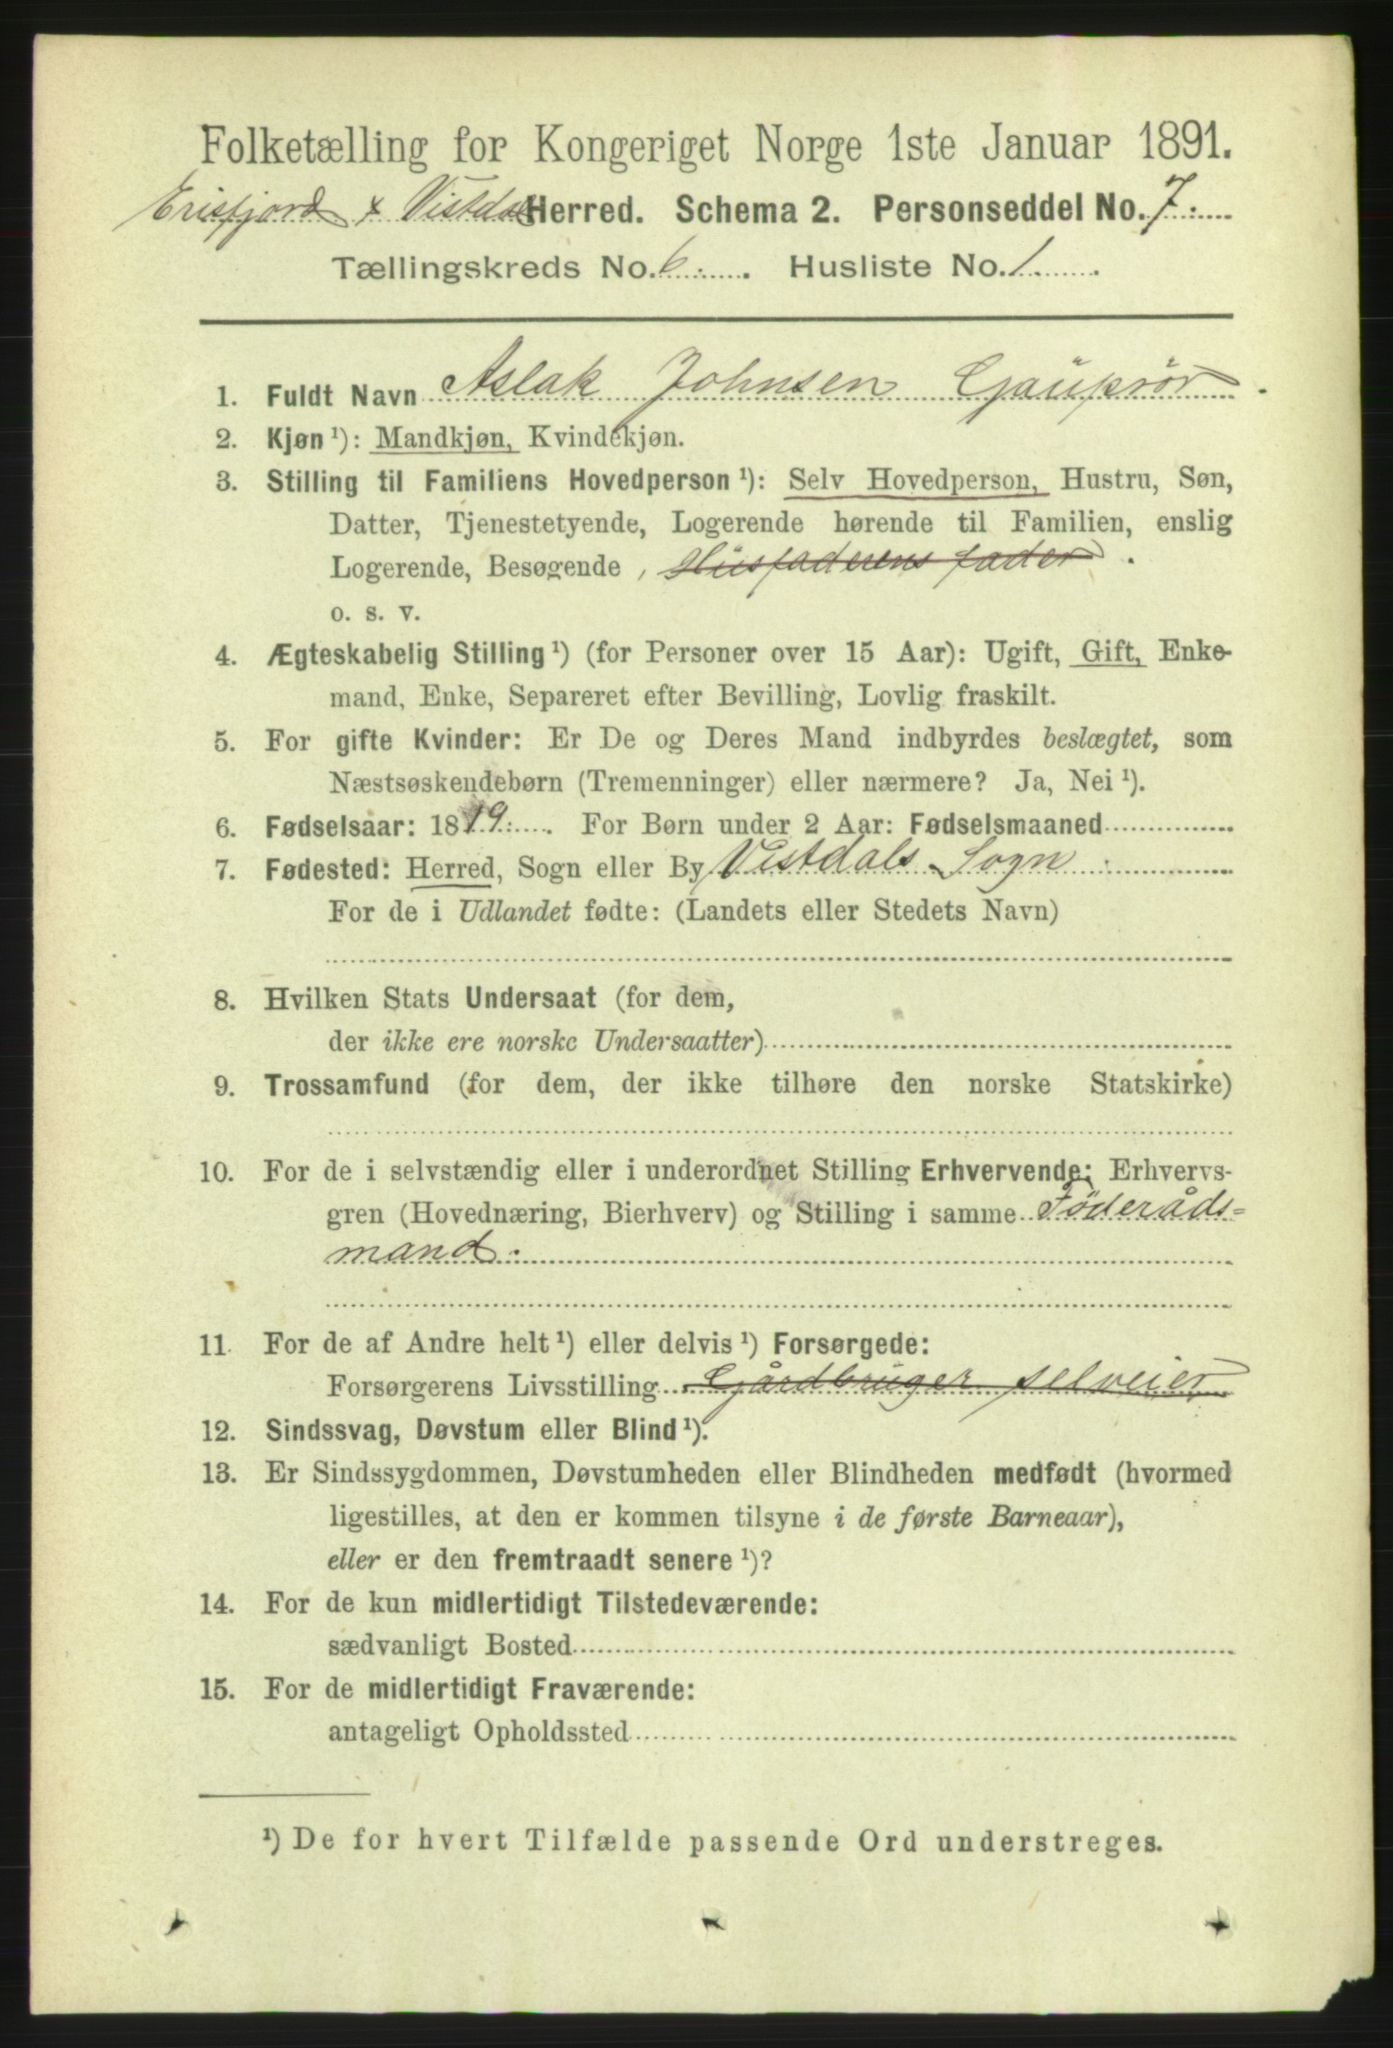 Folketælling for Kongeriget Norge 1ste Januar 1891.
Erisfjord & Vistdal Herred. Schema 2. Personseddel No. 7.
Tællingskreds No. 6. Husliste No. 1.
1. Fuldt Navn Aslak Johnsen Gauprör.
2. Kjøn ¹): Mandkjøn, Kvindekjøn.
3. Stilling til Familiens Hovedperson ¹): Selv Hovedperson, Hustru, Søn,
Datter, Tjenestetyende, Logerende hørende til Familien, enslig
Logerende, Besøgende, Husfaderens fader.
o. s. v.
4. Ægteskabelig Stilling ¹) (for Personer over 15 Aar): Ugift, Gift, Enke-
mand, Enke, Separeret efter Bevilling, Lovlig fraskilt.
5. For gifte Kvinder: Er De og Deres Mand indbyrdes beslægtet, som
Næstsøskendebørn (Tremenninger) eller nærmere? Ja, Nei ¹).
6. Fødselsaar: 1819. For Børn under 2 Aar: Fødselsmaaned
7. Fødested: Herred, Sogn eller By Vistdals Sogn.
For de i Udlandet fødte: (Landets eller Stedets Navn)
8. Hvilken Stats Undersaat (for dem,
der ikke ere norske Undersaatter)
9. Trossamfund (for dem, der ikke tilhøre den norske Statskirke)
10. For de i selvstændig eller i underordnet Stilling Erhvervende: Erhvervs-
gren (Hovednæring, Bierhverv) og Stilling i samme Föderåds=
mand.
11. For de af Andre helt ¹) eller delvis ¹) Forsørgede:
Forsørgerens Livsstilling Gårdbruger selveier
12. Sindssvag, Døvstum eller Blind ¹).
13. Er Sindssygdommen, Døvstumheden eller Blindheden medfødt (hvormed
ligestilles, at den er kommen tilsyne i de første Barneaar),
eller er den fremtraadt senere ¹)?
14. For de kun midlertidigt Tilstedeværende:
sædvanligt Bosted
15. For de midlertidigt Fraværende:
antageligt Opholdssted
¹) De for hvert Tilfælde passende Ord understreges.